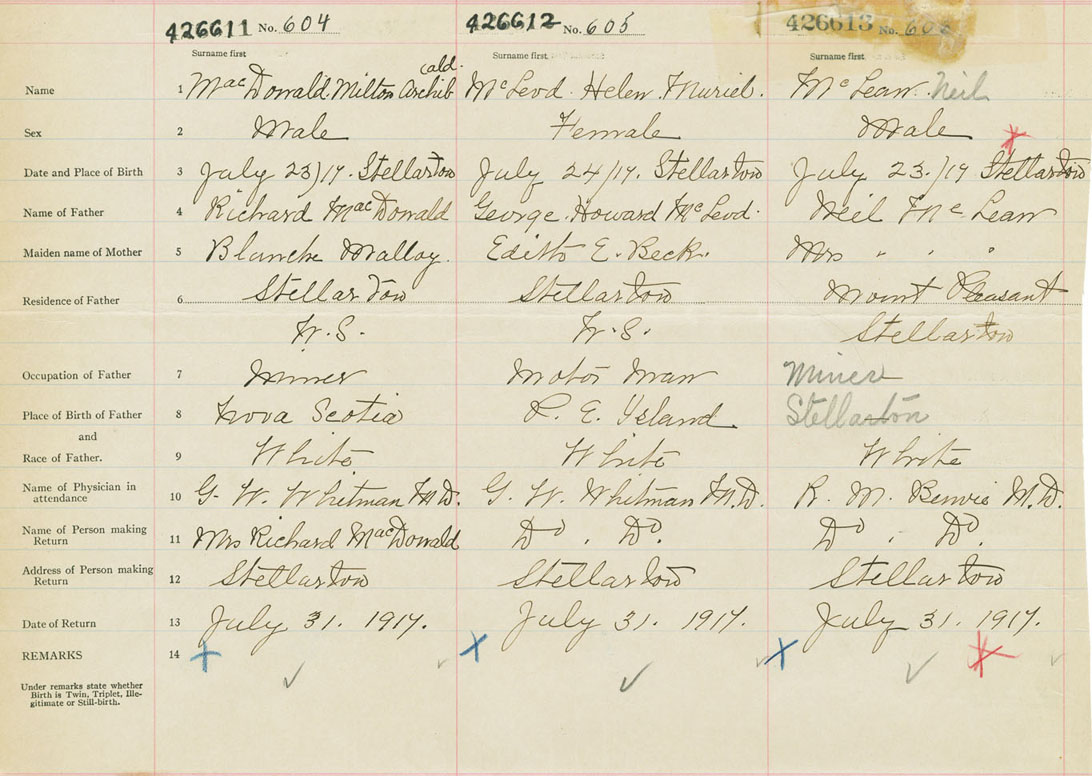 426611 No. 604 426612 No. 605 426613 No.
Surname first Surname first Surname first
Name 1 MacDonald Milton Archibald. McLeod Helen Muriel. McLean Neil
Sex 2 Male Female Male
Date and Place of Birth 3 July 23/17. Stellarton July 24/17. Stellarton July 23./17 Stellarton
Name of Father 4 Richard MacDonald George Howard McLeod. Neil McLean
Maiden name of Mother 5 Blanche Malloy. Edith E. Beck. Mrs " "
Residence of Father 6 Stellarton Stellarton Mount Pleasant
N.S. N.S. Stellarton
Occupation of Father 7 Miner Motor Man Miner
Place of Birth of Father 8 Nova Scotia P. E. Island Stellarton
and
Race of Father. 9 White White White
Name of Physician in
attendance 10 G. W. Whitman M.D. G. W. Whitman M.D. R. M. Benvie M.D.
Name of Person making
Return 11 Mrs Richard MacDonald Do. Do. Do. Do.
Address of Person making
Return 12 Stellarton Stellarton Stellarton
Date of Return 13 July 31. 1917. July 31. 1917. July 31. 1917.
REMARKS 14
Under remarks state whether
Birth is Twin, Triplet, Ille-
gitimate or Still-birth.